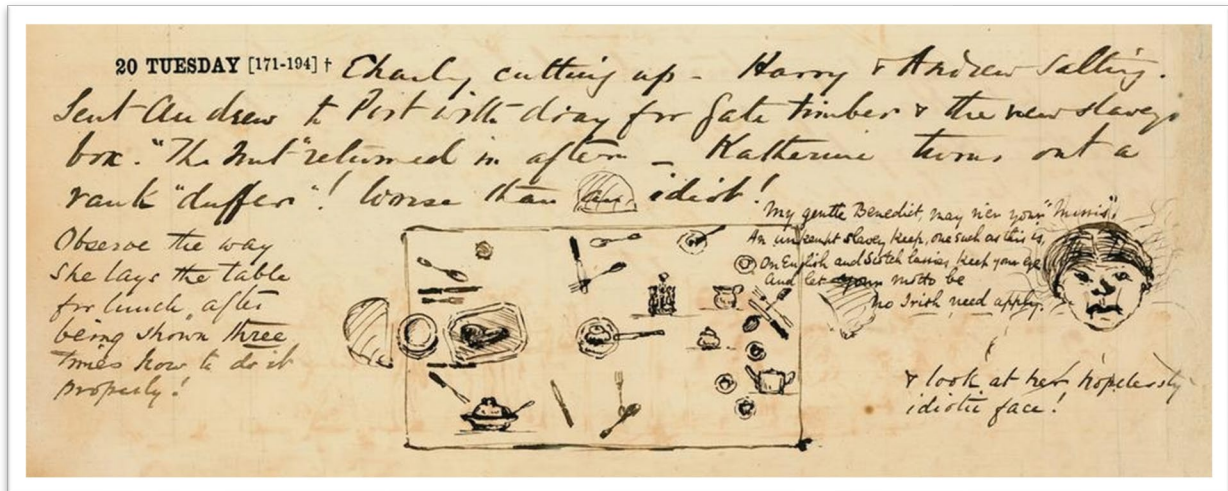 20 TUESDAY [171-194] † Charly cutting up - Harry & Andrew Salting.
Sent Andrew to Port with dray for gate timber & the new slavey's
box. "The Nut" returned in aftern _ Katherine turns out a
rank "duffer"! Worse than an idiot!
Observe the way
she lays the table
for lunch, after
being shown three
times how to do it
properly!
My gentle Benedict, may ne'er your
An unkempt slavey keep, one such as this is,
On English and Scotch lassies keep your eye
And let your motto be
no Irish need apply.
& look at her hopelessly
idiotic face!